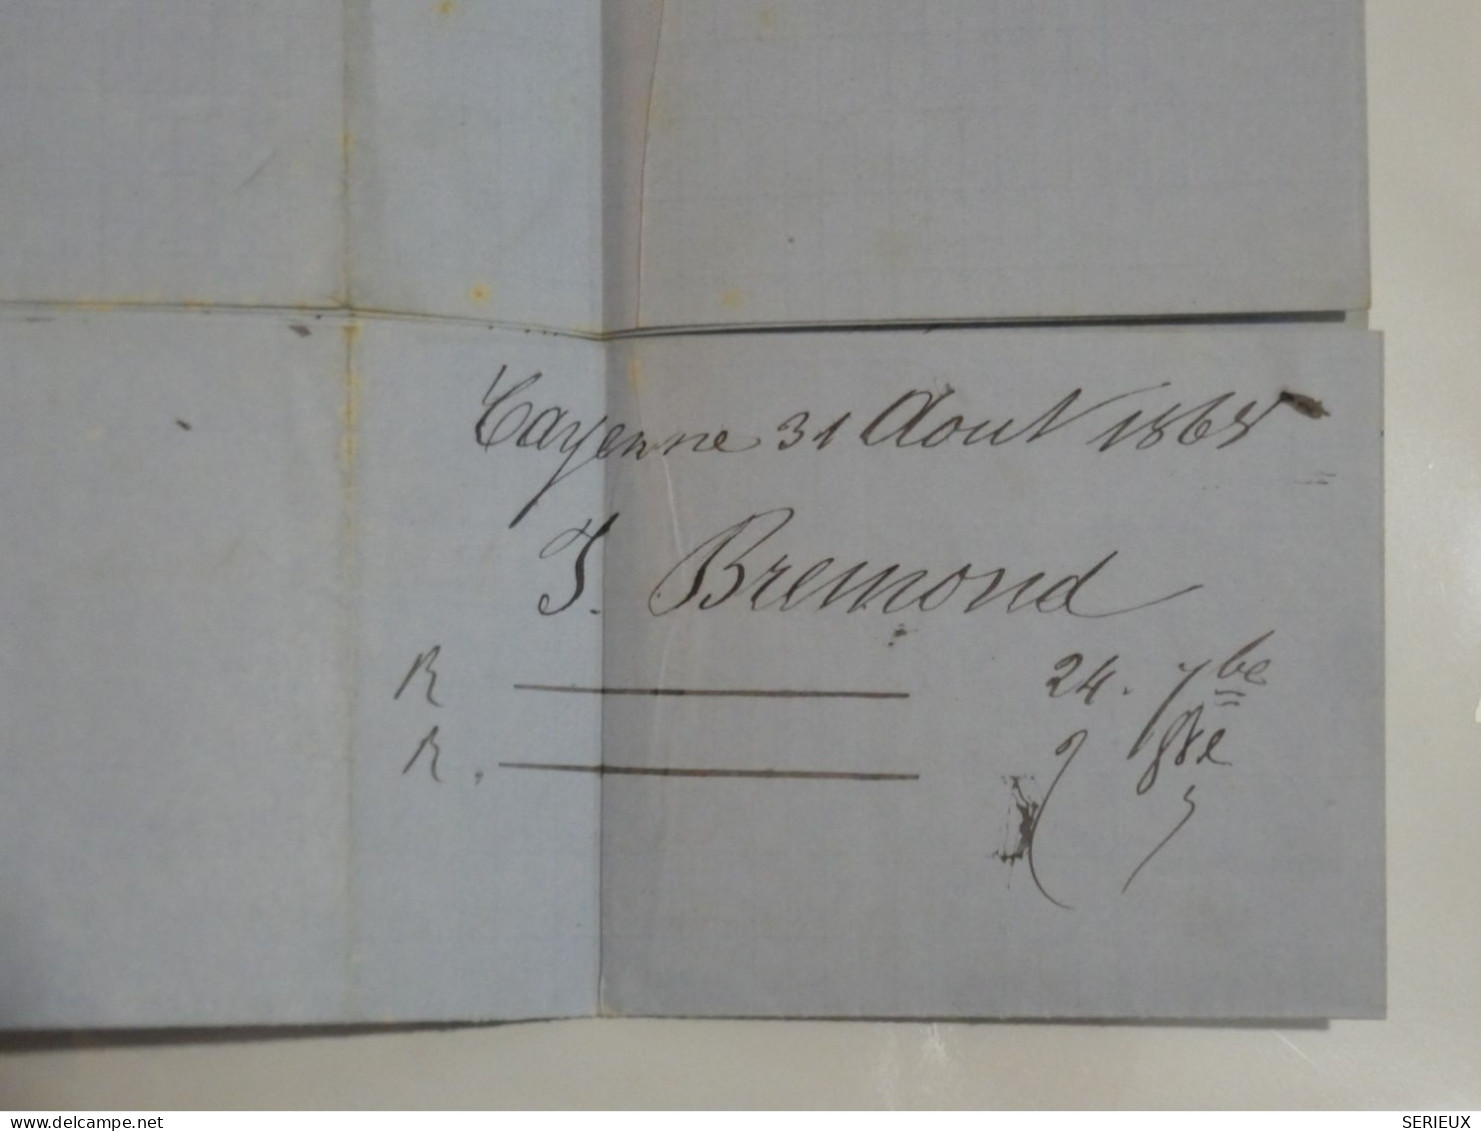 Cayenne 31 Aout 1865
J. Bremond
R ——— 24. 7be
R. ——— 9 8bre
delcampe.net
SERIEUX